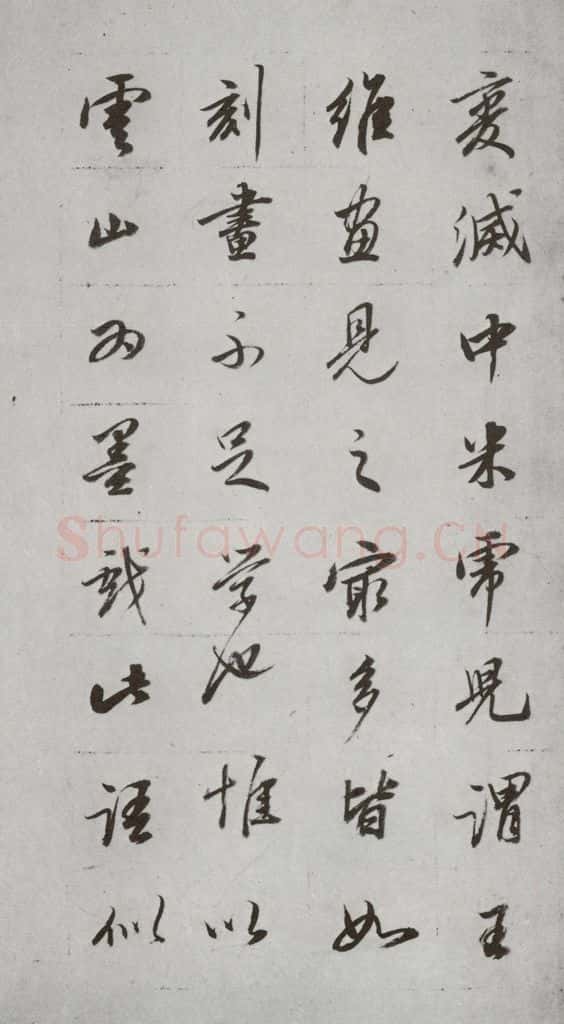 變滅中米常見謂王
維畫見之最多皆如
刻畫不足學也惟以
雲山為墨戲此語似
Shufawang.CN